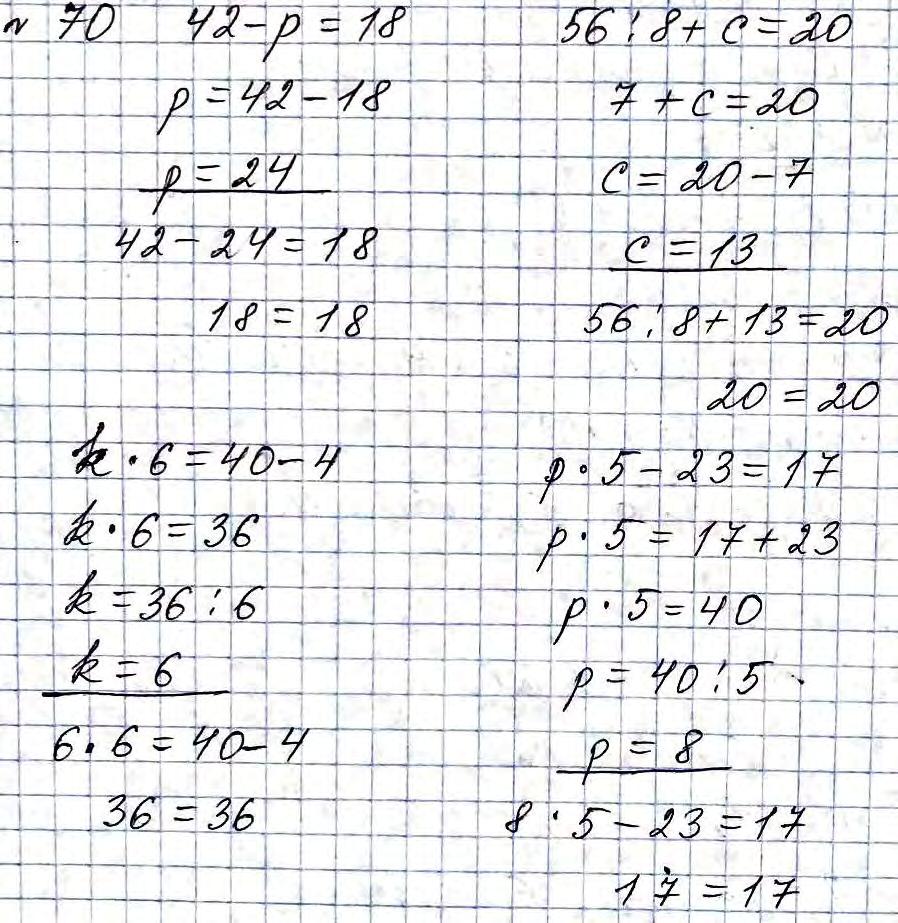 № 70 42-p=18
p=42-18
p=24
42-24=18
18=18
56:8+c=20
7+c=20
c=20-7
c=13
56:8+13=20
20=20
k·6=40-4
k·6=36
k=36:6
k=6
6·6=40-4
36=36
p·5-23=17
p·5=17+23
p·5=40
p=40:5
p=8
8·5-23=17
17=17